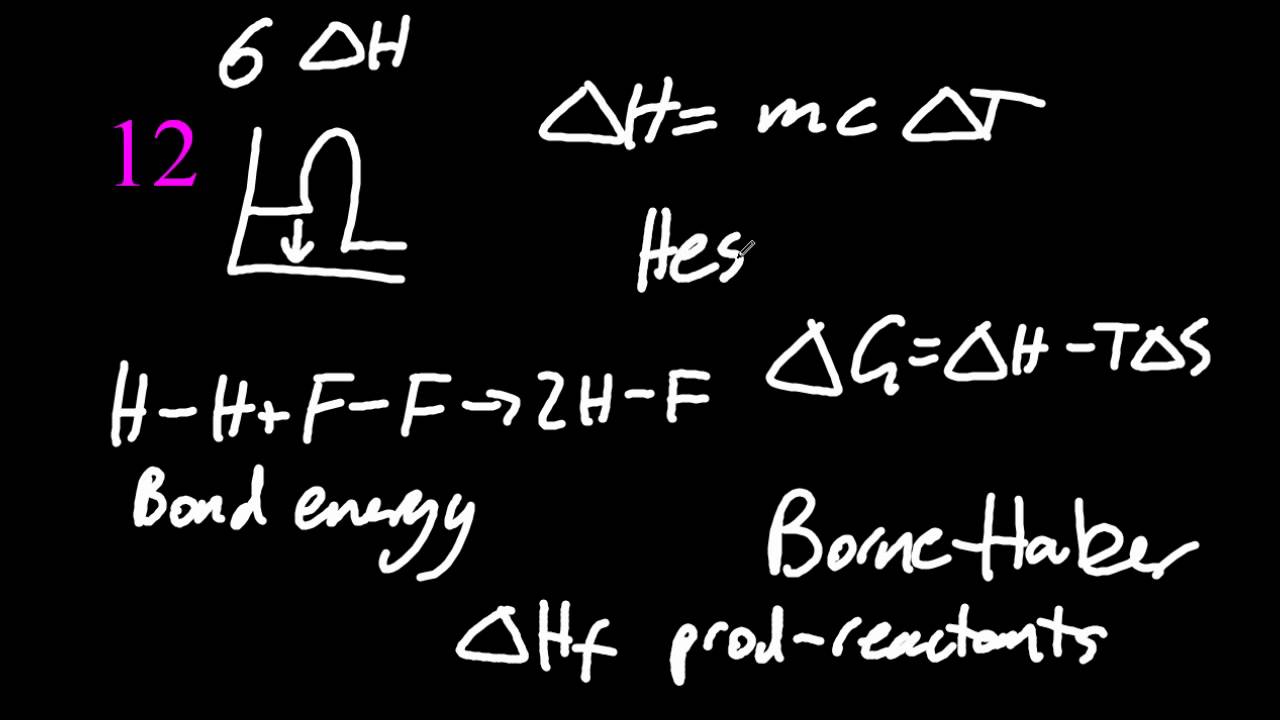 6 ΔH
12
ΔH= mc ΔT
Hes
ΔG=ΔH-TΔS
H-H+F-F→2H-F
Bond energy
Borne-Haber
ΔHf prod-reactants